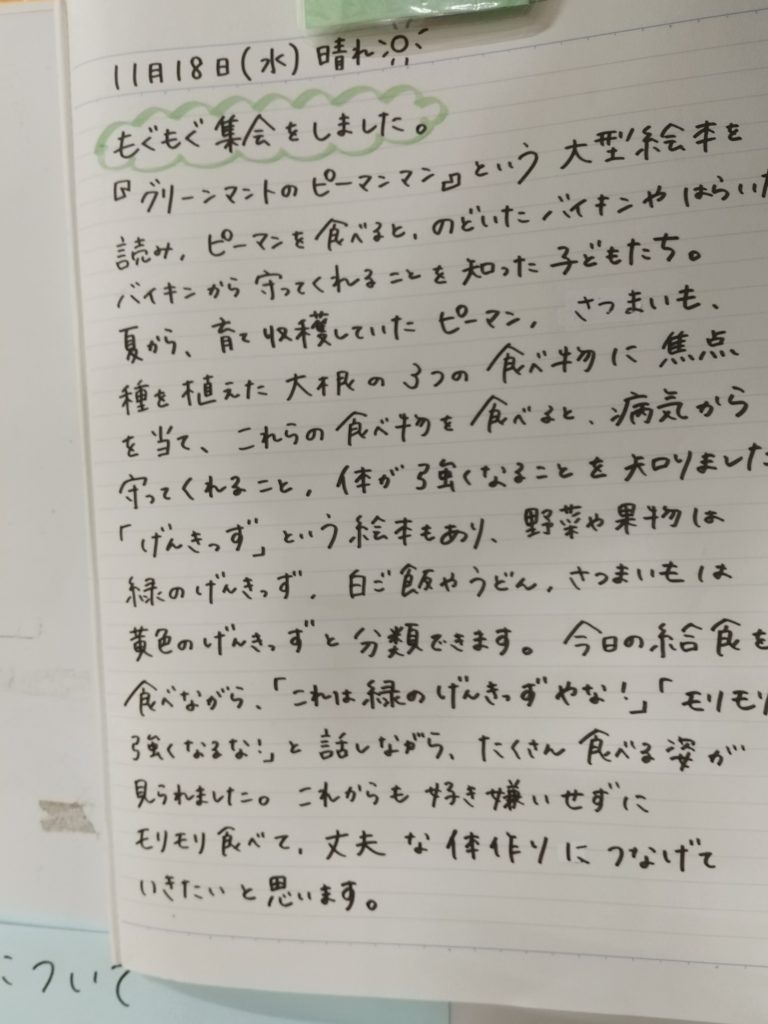 11月18日(水) 晴れ
もぐもぐ集会をしました。
『グリーンマントのピーマンマン』という 大型絵本を
読み、ピーマンを食べると、のどいたバイキンや はらいた
バイキンから守ってくれることを知った子どもたち。
夏から、育て収穫していた ピーマン、さつまいも、
種を植えた大根の3つの食べ物に焦点
を当て、これらの食べ物を食べると、病気から
守ってくれること、体が強くなることを知りました
「げんきっず」という絵本もあり、野菜や果物は
緑のげんきっず、白ご飯やうどん、さつまいもは
黄色のげんきっずと分類できます。今日の給食を
食べながら、「これは緑のげんきっずやな!」「モリモリ
強くなるな!」と話しながら、たくさん食べる姿が
見られました。これからも好き嫌いせずに
モリモリ食べて、丈夫な体作りにつなげて
いきたいと思います。
について